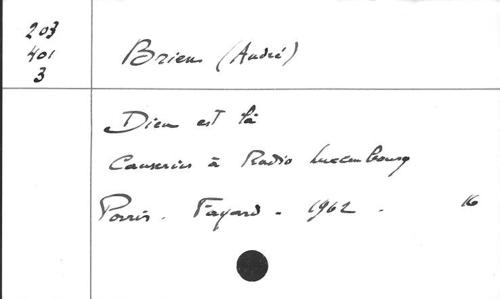 203
401
3
Brien (André)
Dieu est là
Causeries à Radio Luxembourg
Paris. Fayard. 1962. 16